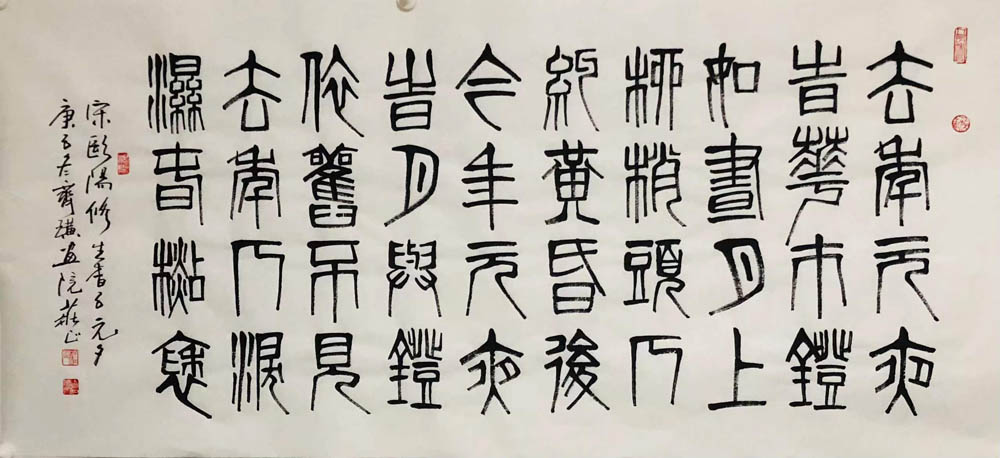 去年元夜
旹華市鐙
如晝月上
柳梢頭人
約黃昏後
今年元夜
旹月與鐙
依舊不見
去年人淚
濕春衫袖
宋歐陽修生查子元夕
庚子冬齊璜畫院